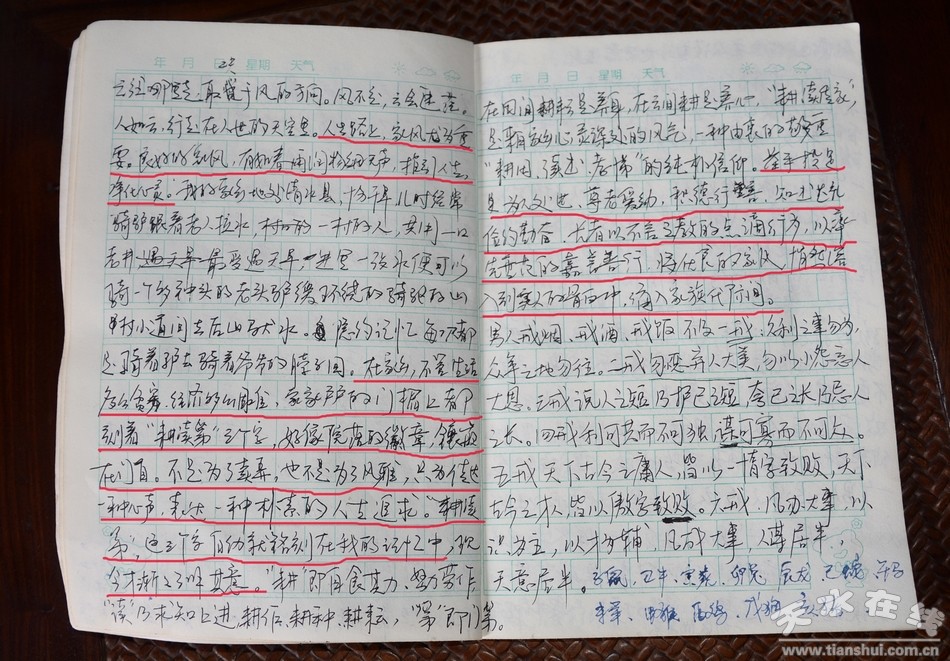 年 月 日 星期 天气
云组哪里是最贴于风的方向。风不定，云会座落。
人如云，行走在人世的天空里。人生路上，家风尤为重
要。良好的家风，有如春雨润物细无声，指引人生，
净化心灵。我的家乡地处清水县，十多年儿时经常
骑驴跟着老人拉水，村口的一村的人，共用一口
老井，遇天旱最受遇天旱，进里一张水便可以
骑一个多钟头的老头驴缓环绕的骑驴的山
村小道间去后山驮水。隐约记忆每次都
是骑着驴去骑着爷爷的脖子回。在家乡，不管生活
多么贫穷，经济多么困难，家家户户的门楣上都
刻着“耕读第”三个字，好像院落的徽章，镶嵌
在门首。不是为了读弄，也不是为了风雅，只为传达
一种心声，表达一种朴素的人生追求。“耕读
第”，这三个字自幼就铭刻在我的记忆中，现
今才渐入了味其意。“耕”即自食其力、努力劳作，
“读”乃求知上进，耕作、耕种、耕耘，“第”即门第。
年 月 日 星期 天气
在田间耕耘是养身，在云间耕是养心，“耕读传家”，
是朝家乡心灵深处的风气，一种由衷的敬重
“耕田、读书、孝悌”的纯朴信仰。举手投足
具为人处世、尊老爱幼、积德行善、知书达礼
俭约勤奋，长者以不言之教的点滴行为，以率
先垂范的嘉善行，将优良的家风，悄然落
入到家人的骨血中，滴入家族代际间。
男人戒烟、戒酒、戒饭不及一戒，名利之事勿为，
众争之地勿往。二戒勿要弃人大美，勿以小怨忘人
大恩。三戒说人之短乃护己之短，夸己之长乃忌人
之长。四戒利可共而不可独，谋可寡而不可众。
五戒天下古今之庸人，皆以一惰字致败，天下
古今之才人，皆以傲字致败。六戒，凡办大事，以
识为主，以才为辅，凡成大事，人谋居半，
天意居半。子鼠，丑牛，寅虎，卯兔，辰龙，巳蛇，午马
未羊，申猴，酉鸡，戌狗，亥猪
天水在线
www.tianshui.com.cn